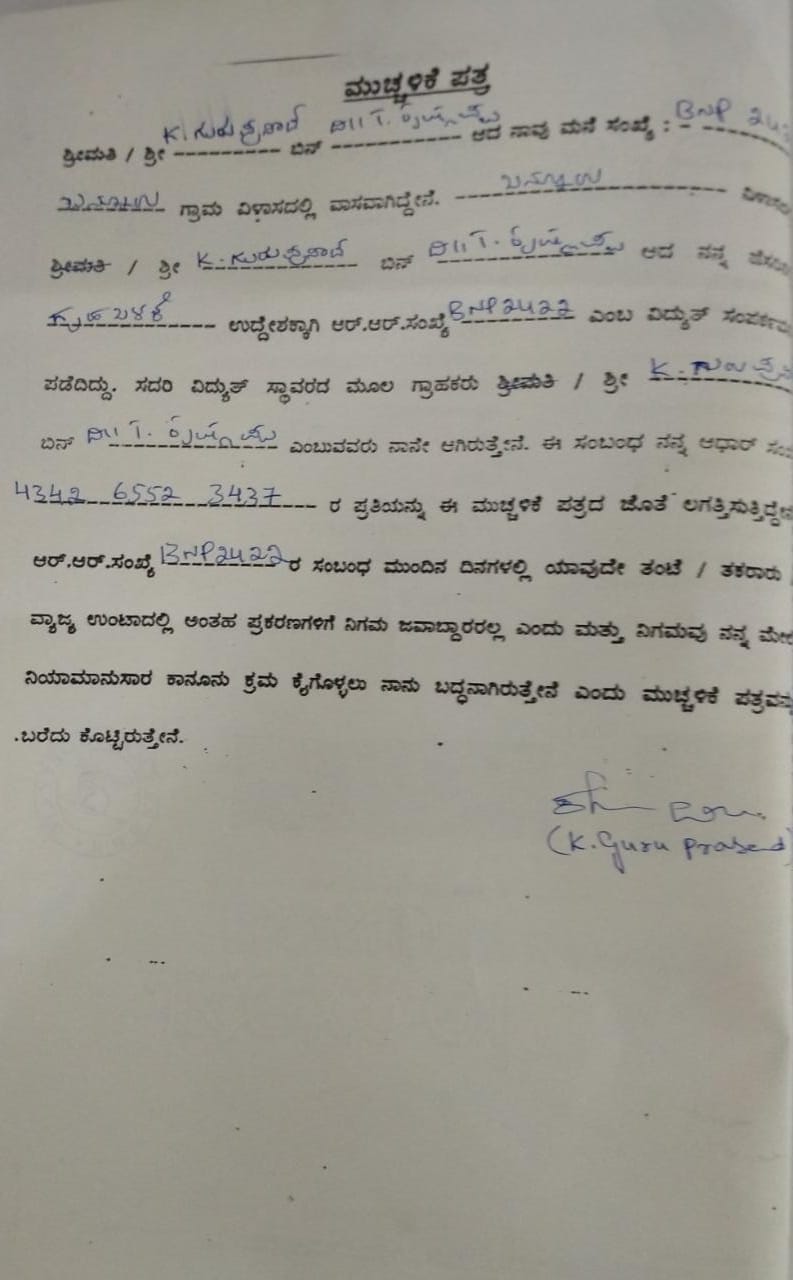 ಮುಚ್ಚಳಿಕೆ ಪತ್ರ
ಶ್ರೀಮತಿ / ಶ್ರೀ K. ಗುರುಪ್ರಸಾದ್ ಬಿನ್ ದಿ|| T. ಕೃಷ್ಣಪ್ಪ ಆದ ನಾವು ಮನೆ ಸಂಖ್ಯೆ : BNP
ಗ್ರಾಮ ವಿಳಾಸದಲ್ಲಿ ವಾಸವಾಗಿದ್ದೇನೆ.
ಶ್ರೀಮತಿ / ಶ್ರೀ K. ಗುರುಪ್ರಸಾದ್ ಬಿನ್ ದಿ|| T. ಕೃಷ್ಣಪ್ಪ ಆದ ನನ್ನ
ಗೃಹ ಬಳಕೆ ಉದ್ದೇಶಕ್ಕಾಗಿ ಆರ್.ಆರ್.ಸಂಖ್ಯೆ BNP2422 ಎಂಬ ವಿದ್ಯುತ್
ಪಡೆದಿದ್ದು. ಸದರಿ ವಿದ್ಯುತ್ ಸ್ಥಾವರದ ಮೂಲ ಗ್ರಾಹಕರು ಶ್ರೀಮತಿ / ಶ್ರೀ K.
ಬಿನ್ ದಿ|| T. ಕೃಷ್ಣಪ್ಪ ಎಂಬುವವರು ನಾನೇ ಆಗಿರುತ್ತೇನೆ. ಈ ಸಂಬಂಧ ನನ್ನ ಆಧಾರ್
4342 6552 3437 ರ ಪ್ರತಿಯನ್ನು ಈ ಮುಚ್ಚಳಿಕೆ ಪತ್ರದ ಜೊತೆ
ಆರ್.ಆರ್.ಸಂಖ್ಯೆ BNP2422 ರ ಸಂಬಂಧ ಮುಂದಿನ ದಿನಗಳಲ್ಲಿ ಯಾವುದೇ ತಂಟೆ / ತಕರಾರು
ವ್ಯಾಜ್ಯ ಉಂಟಾದಲ್ಲಿ ಅಂತಹ ಪ್ರಕರಣಗಳಿಗೆ ನಿಗಮ ಜವಾಬ್ದಾರರಲ್ಲ ಎಂದು ಮತ್ತು ನಿಗಮವು ನನ್ನ
ನಿಯಾಮಾನುಸಾರ ಕಾನೂನು ಕ್ರಮ ಕೈಗೊಳ್ಳಲು ನಾನು ಬದ್ಧನಾಗಿರುತ್ತೇನೆ ಎಂದು ಮುಚ್ಚಳಿಕೆ
.ಬರೆದು ಕೊಟ್ಟಿರುತ್ತೇನೆ.
(K. Guru Prasad)